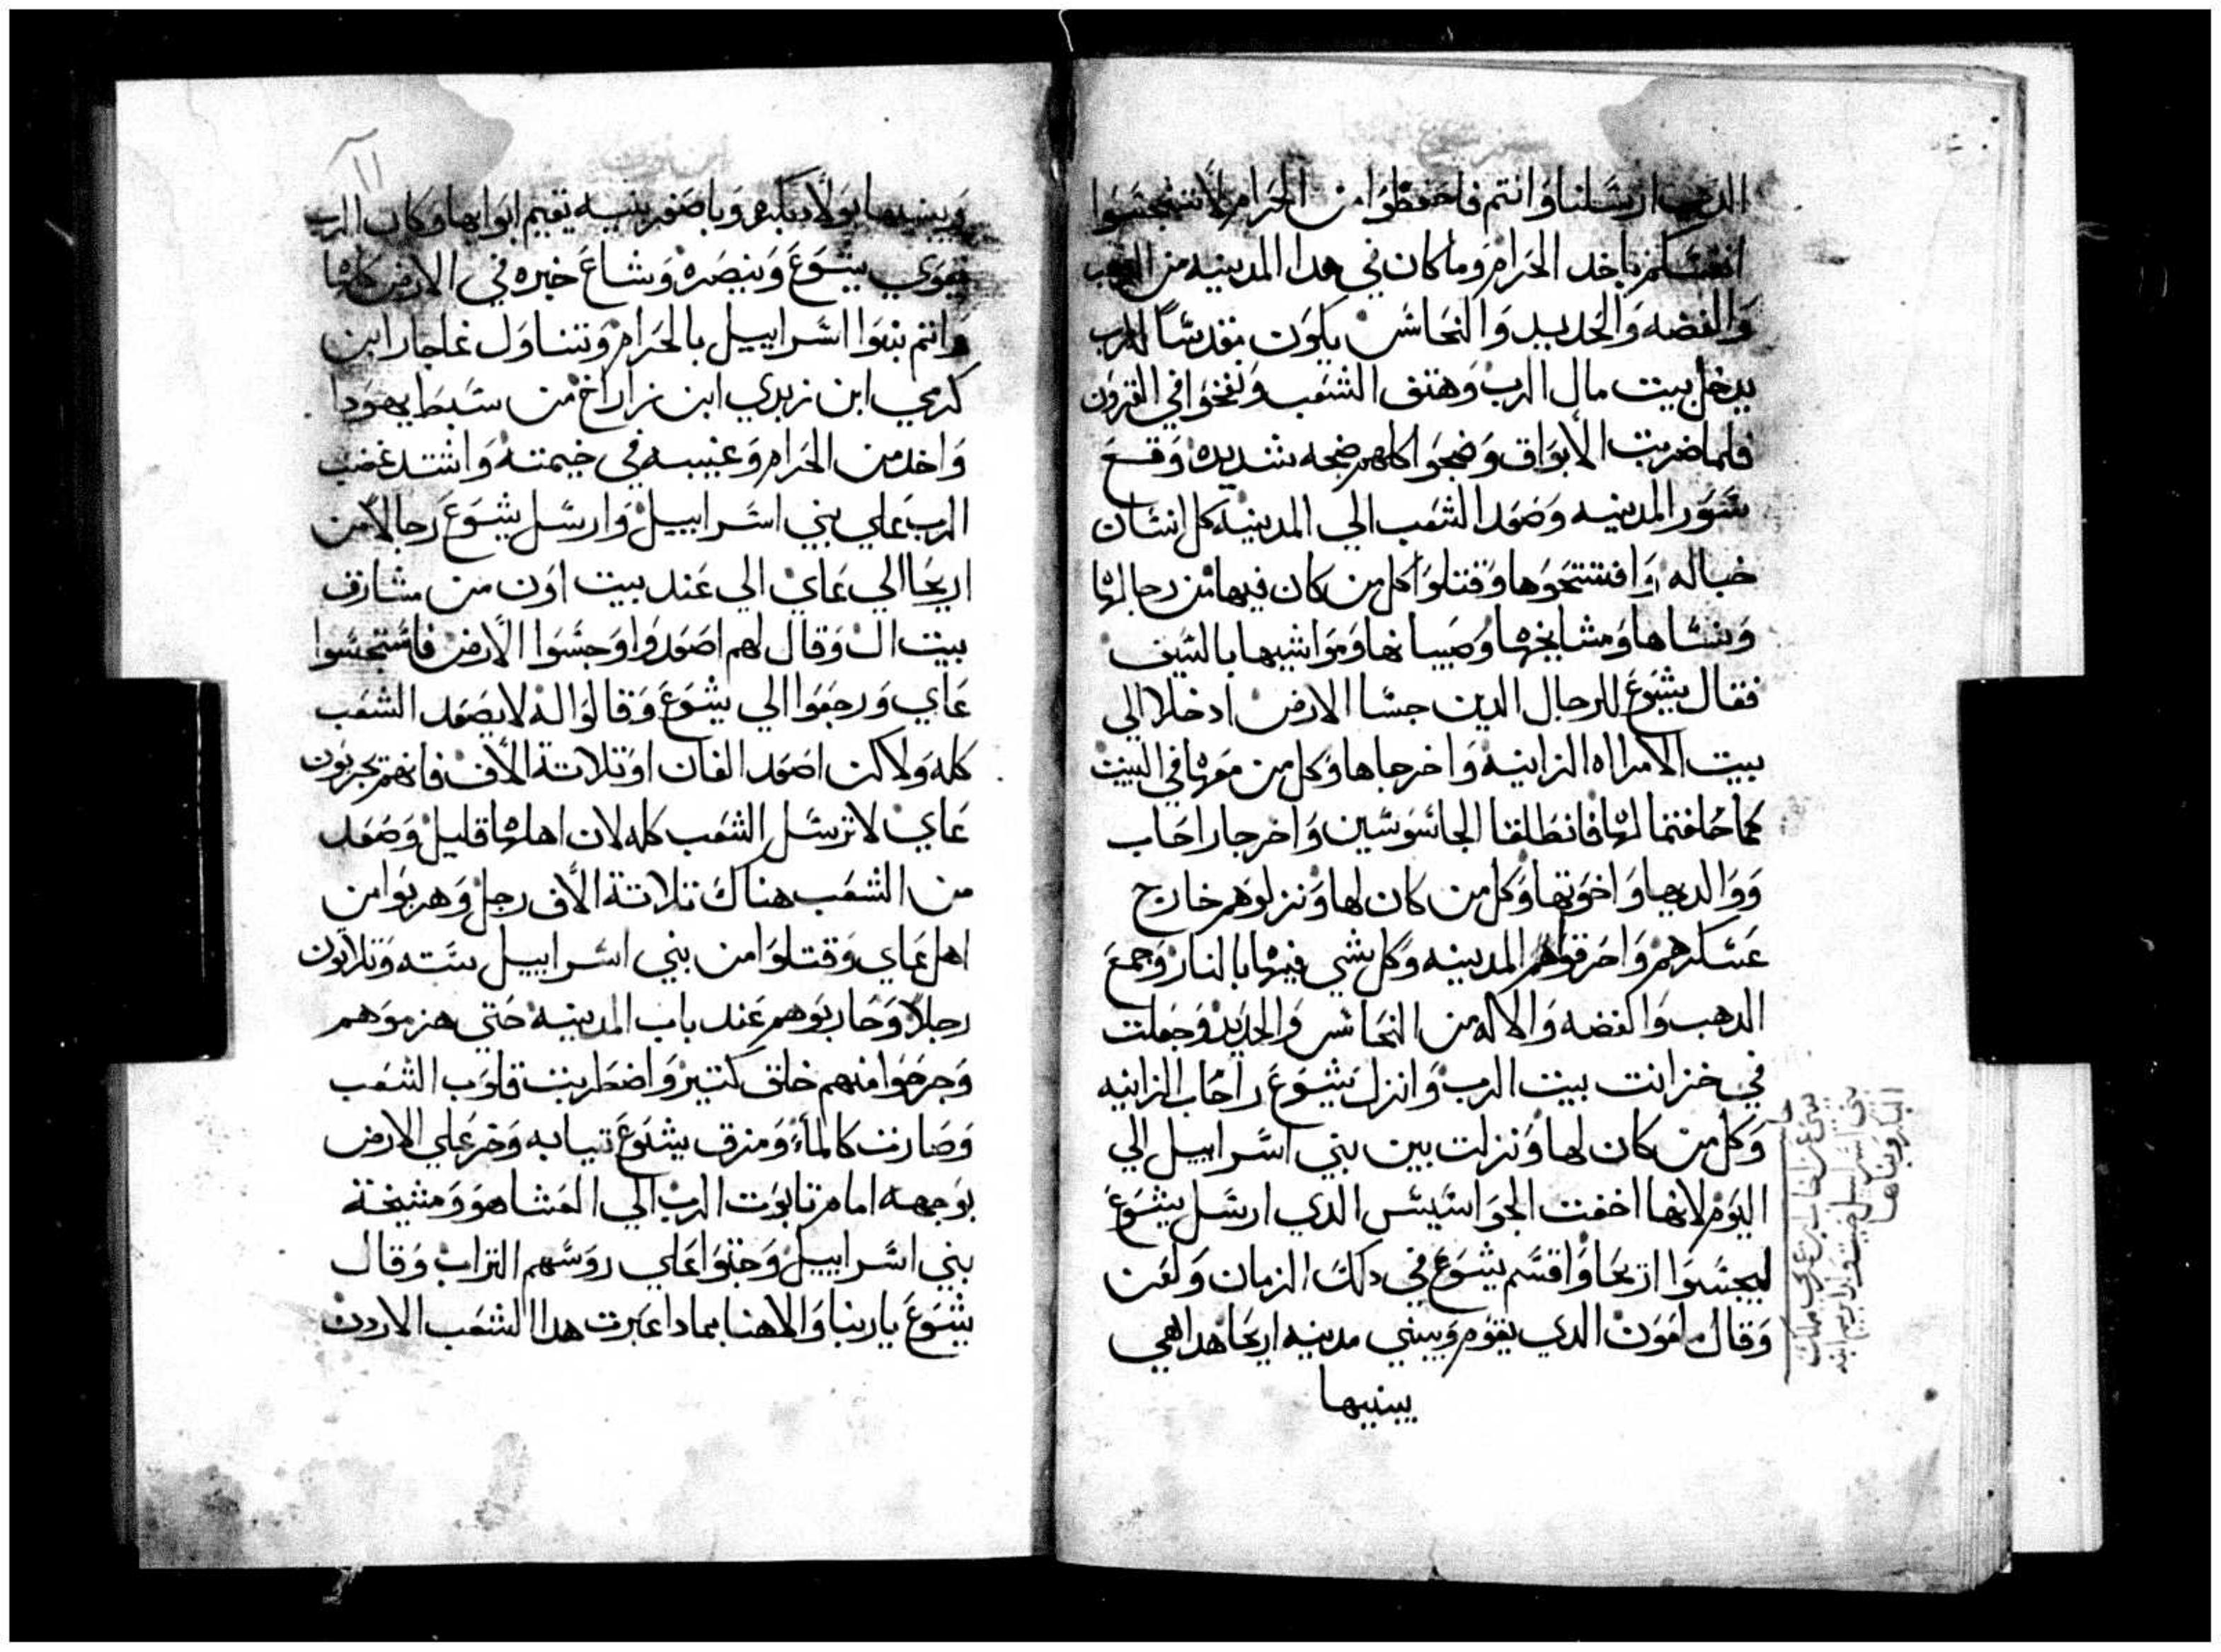 سفر يشوع
الدين ارسلنا وانتم فاحفظوا من الحرام لا تتنجسوا
انفسكم باخد الحرام وما كان في هدا المدينه من الدهب
والفضه والحديد والنحاس يكون مقدسًا للرب
يدخل بيت مال الرب وهتف الشعب ونفخوا في القرون
فلما ضربت الابواق وضجوا كلهم ضجه شديده وقع
سور المدينه وصعد الشعب الي المدينه كل انسان
حباله وافتتحوها وقتلوا كل من كان فيها من رجالها
ونساها ومشايخها وصبيانها ومواشيها بالسيف
فقال يشوع للرجال الدين جسا الارض ادخلا الي
بيت الامراه الزانيه واخرجاها وكل من معها في البيت
كما حلفتما لها فانطلقا الجاسوسين واخرجا راحاب
ووالديها واخوتها وكل من كان لها ونزلوهم خارج
عسكرهم واحرقواهم المدينه وكل شي فيها بالنار وجمع
الدهب والفضه والاله من النحاس والحديد وجعلت
في خزانت بيت الرب وانزل يشوع راحاب الزانيه
وكل من كان لها ونزلت بين بني اسراييل الي
اليوم لانها اخفت الجواسيس الدي ارسل يشوع
ليجسوا اريحا واقسم يشوع في دلك الزمان ولعن
وقال ملعون الدي يقوم ويبني مدينه اريحا هدا هي
يبنيها
١١
ويبنيها بولاد بكره وباصغر بنيه تقيم ابوابها وكان الرب
يقوي يشوع وينصره وشاع خبره في الارض كلها
وانتم بنوا اسراييل بالحرام وتناول عاجار ابن
كرمي ابن زبدي ابن زاراخ من سبط يهودا
واخد من الحرام وغيبه في خيمته واشتد غضب
الرب علي بني اسراييل وارسل يشوع رجالاً من
اريحا الي عاي الي عند بيت اون من مشارق
بيت ال وقال لهم اصعدوا وجسوا الارض فاستجسوا
عاي ورجعوا الي يشوع وقالوا له لا يصعد الشعب
كله ولاكن اصعد الفان او تلاتة الاف فانهم يخربون
عاي لا ترسل الشعب كله لان اهلها قليل وصعد
من الشعب هناك تلاتة الاف رجل وهربوا من
اهل عاي وقتلوا من بني اسراييل سته وتلاتون
رجلاً وحاربوهم عند باب المدينه حتي هزموهم
وجرحوا منهم خلق كتير واضطربت قلوب الشعب
وصارت كالماء ومزق يشوع تيابه وخر علي الارض
بوجهه امام تابوت الرب الي العشا هو ومشيخة
بني اسراييل وحتوا علي روسهم التراب وقال
يشوع يا ربنا والاهنا بمادا عبرت هدا الشعب الاردن